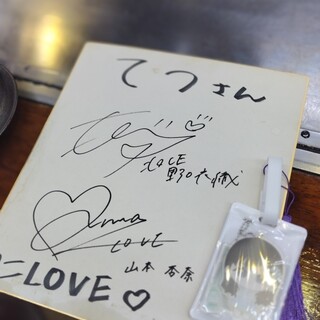 てつさん
=LOVE
野口衣織
anna
LOVE
山本 杏奈
=LOVE♡